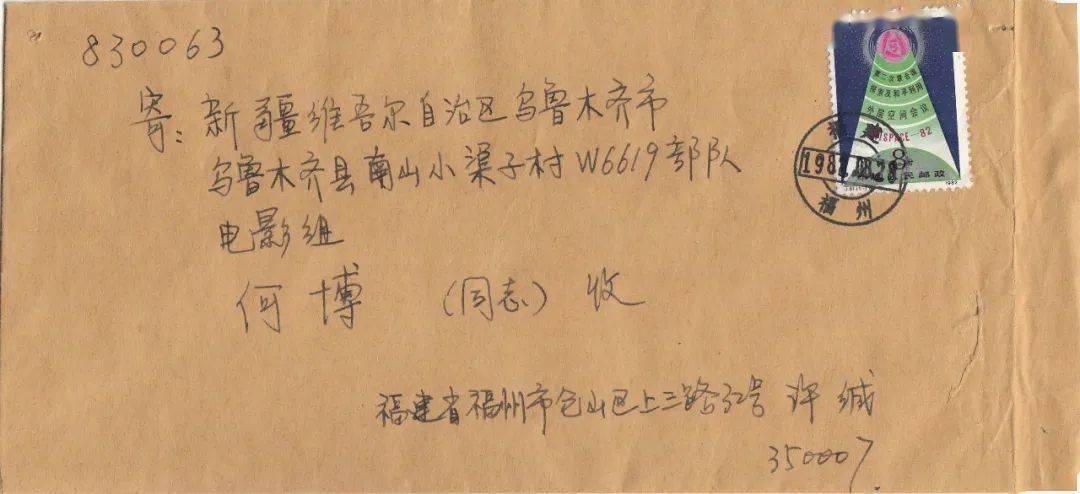 830063
寄：新疆维吾尔自治区乌鲁木齐市
乌鲁木齐县南山小渠子村W6619部队
电影组
何博 （同志） 收
福建省福州市仓山区上三路32号 许缄
350007
第二次联合国
探索及和平利用
外层空间会议
UNISPACE-82
8
民邮政
1982
福建
福州